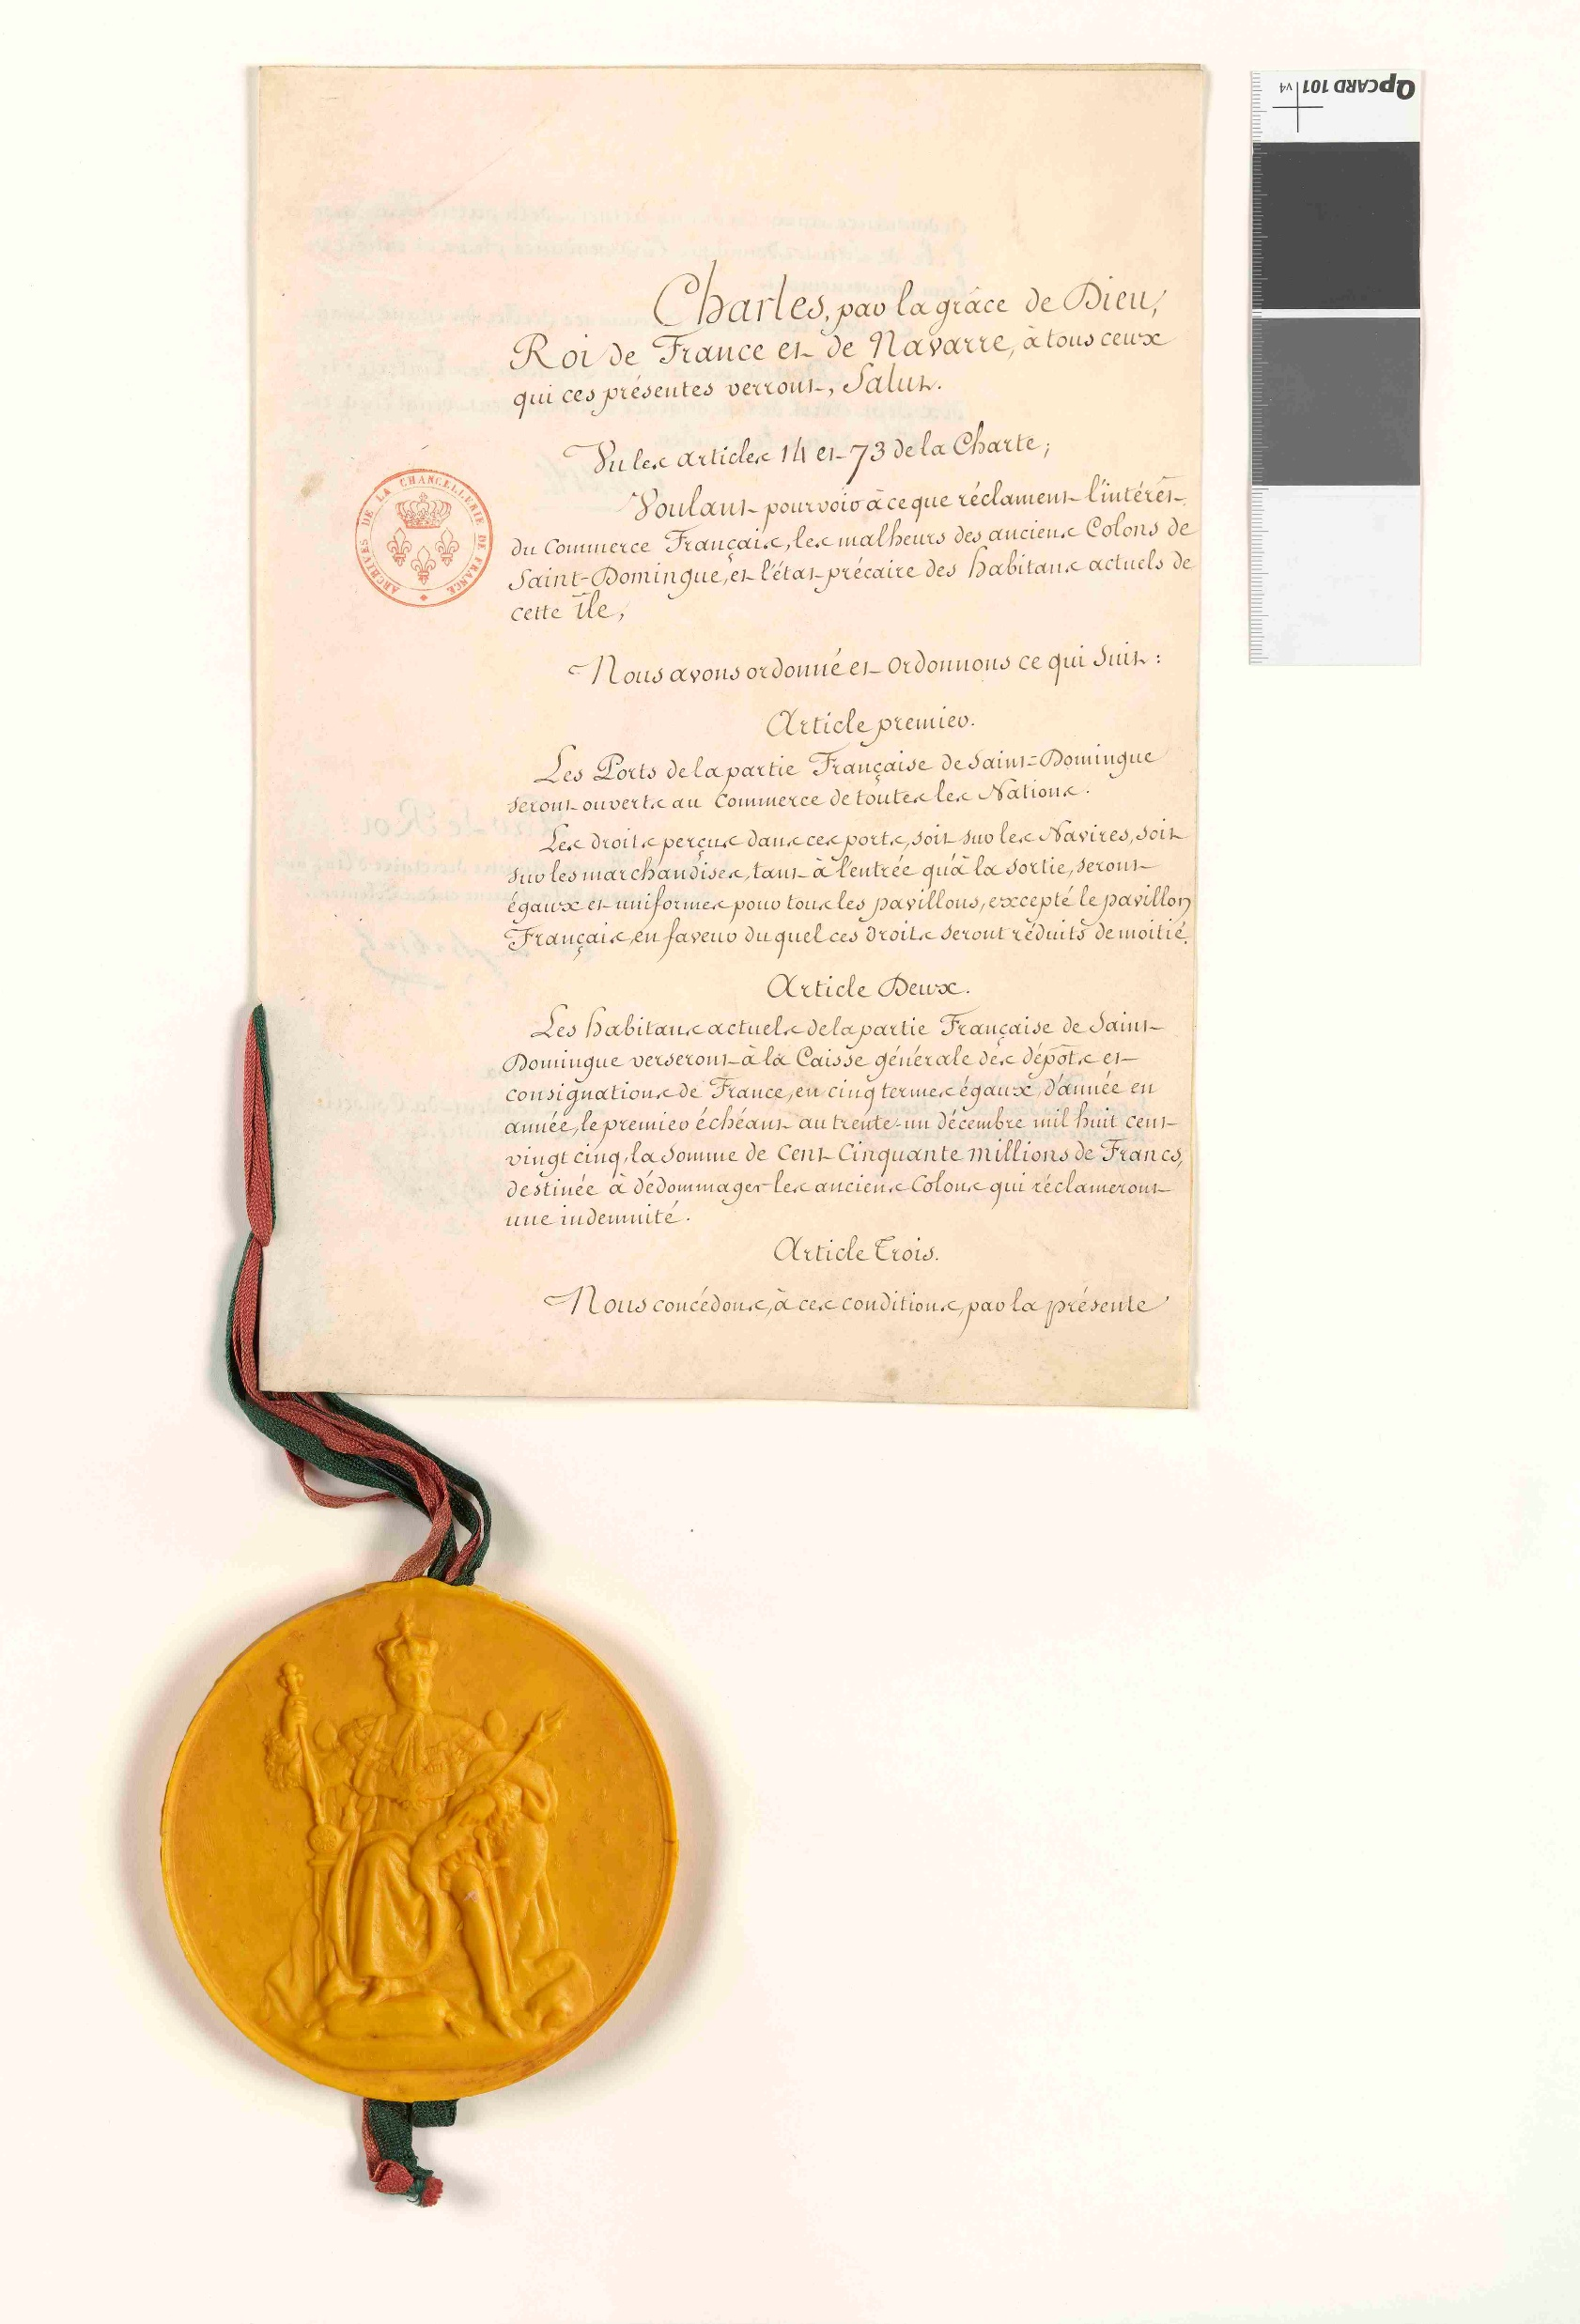 Charles, par la grâce de Dieu,
Roi de France et de Navarre, à tous ceux
qui ces présentes verront, Salut.
Vu les articles 14 et 73 de la Charte;
Voulant pourvoir à ce que réclament l'intérêt
du Commerce Français, les malheurs des anciens Colons de
Saint-Domingue, et l'état précaire des habitans actuels de
cette Île,
Nous avons ordonné et ordonnons ce qui suit :
Article premier.
Les Ports de la partie Française de Saint-Domingue
seront ouverts au Commerce de toutes les Nations.
Les droits perçus dans ces ports, soit sur les Navires, soit
sur les marchandises, tant à l'entrée qu'à la sortie, seront
égaux et uniformes pour tous les pavillons, excepté le pavillon
Français, en faveur duquel ces droits seront réduits de moitié.
Article Deux.
Les habitans actuels de la partie Française de Saint-
Domingue verseront à la Caisse générale des dépôts et
consignations de France, en cinq termes égaux, d'année en
année, le premier échéant au trente-un décembre mil huit cent
vingt cinq, la somme de Cent Cinquante millions de Francs,
destinée à dédommager les anciens Colons qui réclameront
une indemnité.
Article Trois.
Nous concédons, à ces conditions, par la présente
ARCHIVES DE LA CHANCELLERIE DE FRANCE
QPCARD 101 v4